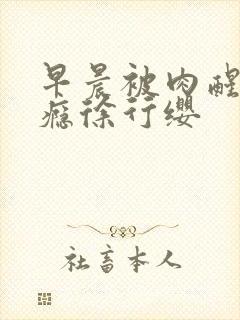 早晨被肉醒
瘾徐行缨
社畜本人